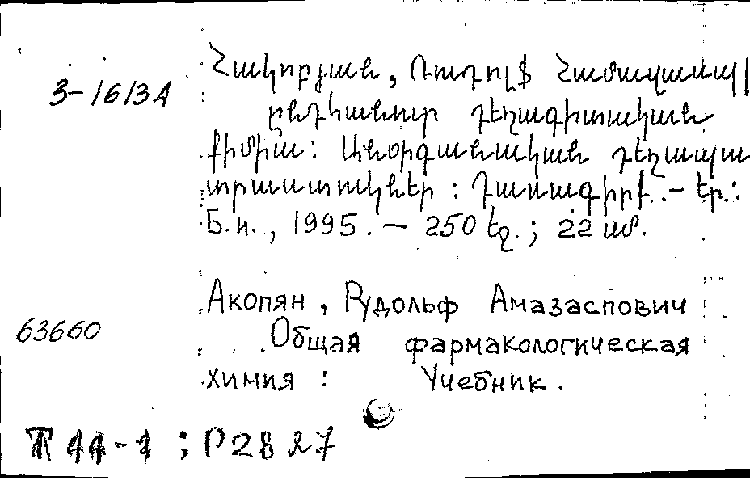 3-1613A
Հակոբյան, Ռուդոլֆ Համազասպի
Ընդհանուր դեղագիտական
քիմիա: Անօրգանական դեղապա
տրաստուկներ: Դասագիրք.- Եր.:
Б.и., 1995.- 250 էջ.; 22 սմ.
Акопян, Рудольф Амазаспович
63660
Общая фармакологическая
химия: Учебник.
44-1; Р2827